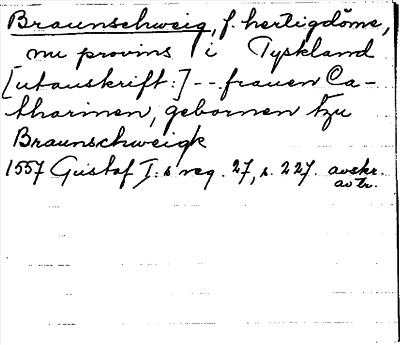 Braunschweig, f. hertigdöme,
nu provins i Tyskland
[utanskrift:] -- frauen Ca-
tharinen, gebornen tzu
Braunschweigk
1557 Gustaf I:s reg. 27, s. 227. avskr.
av tr.